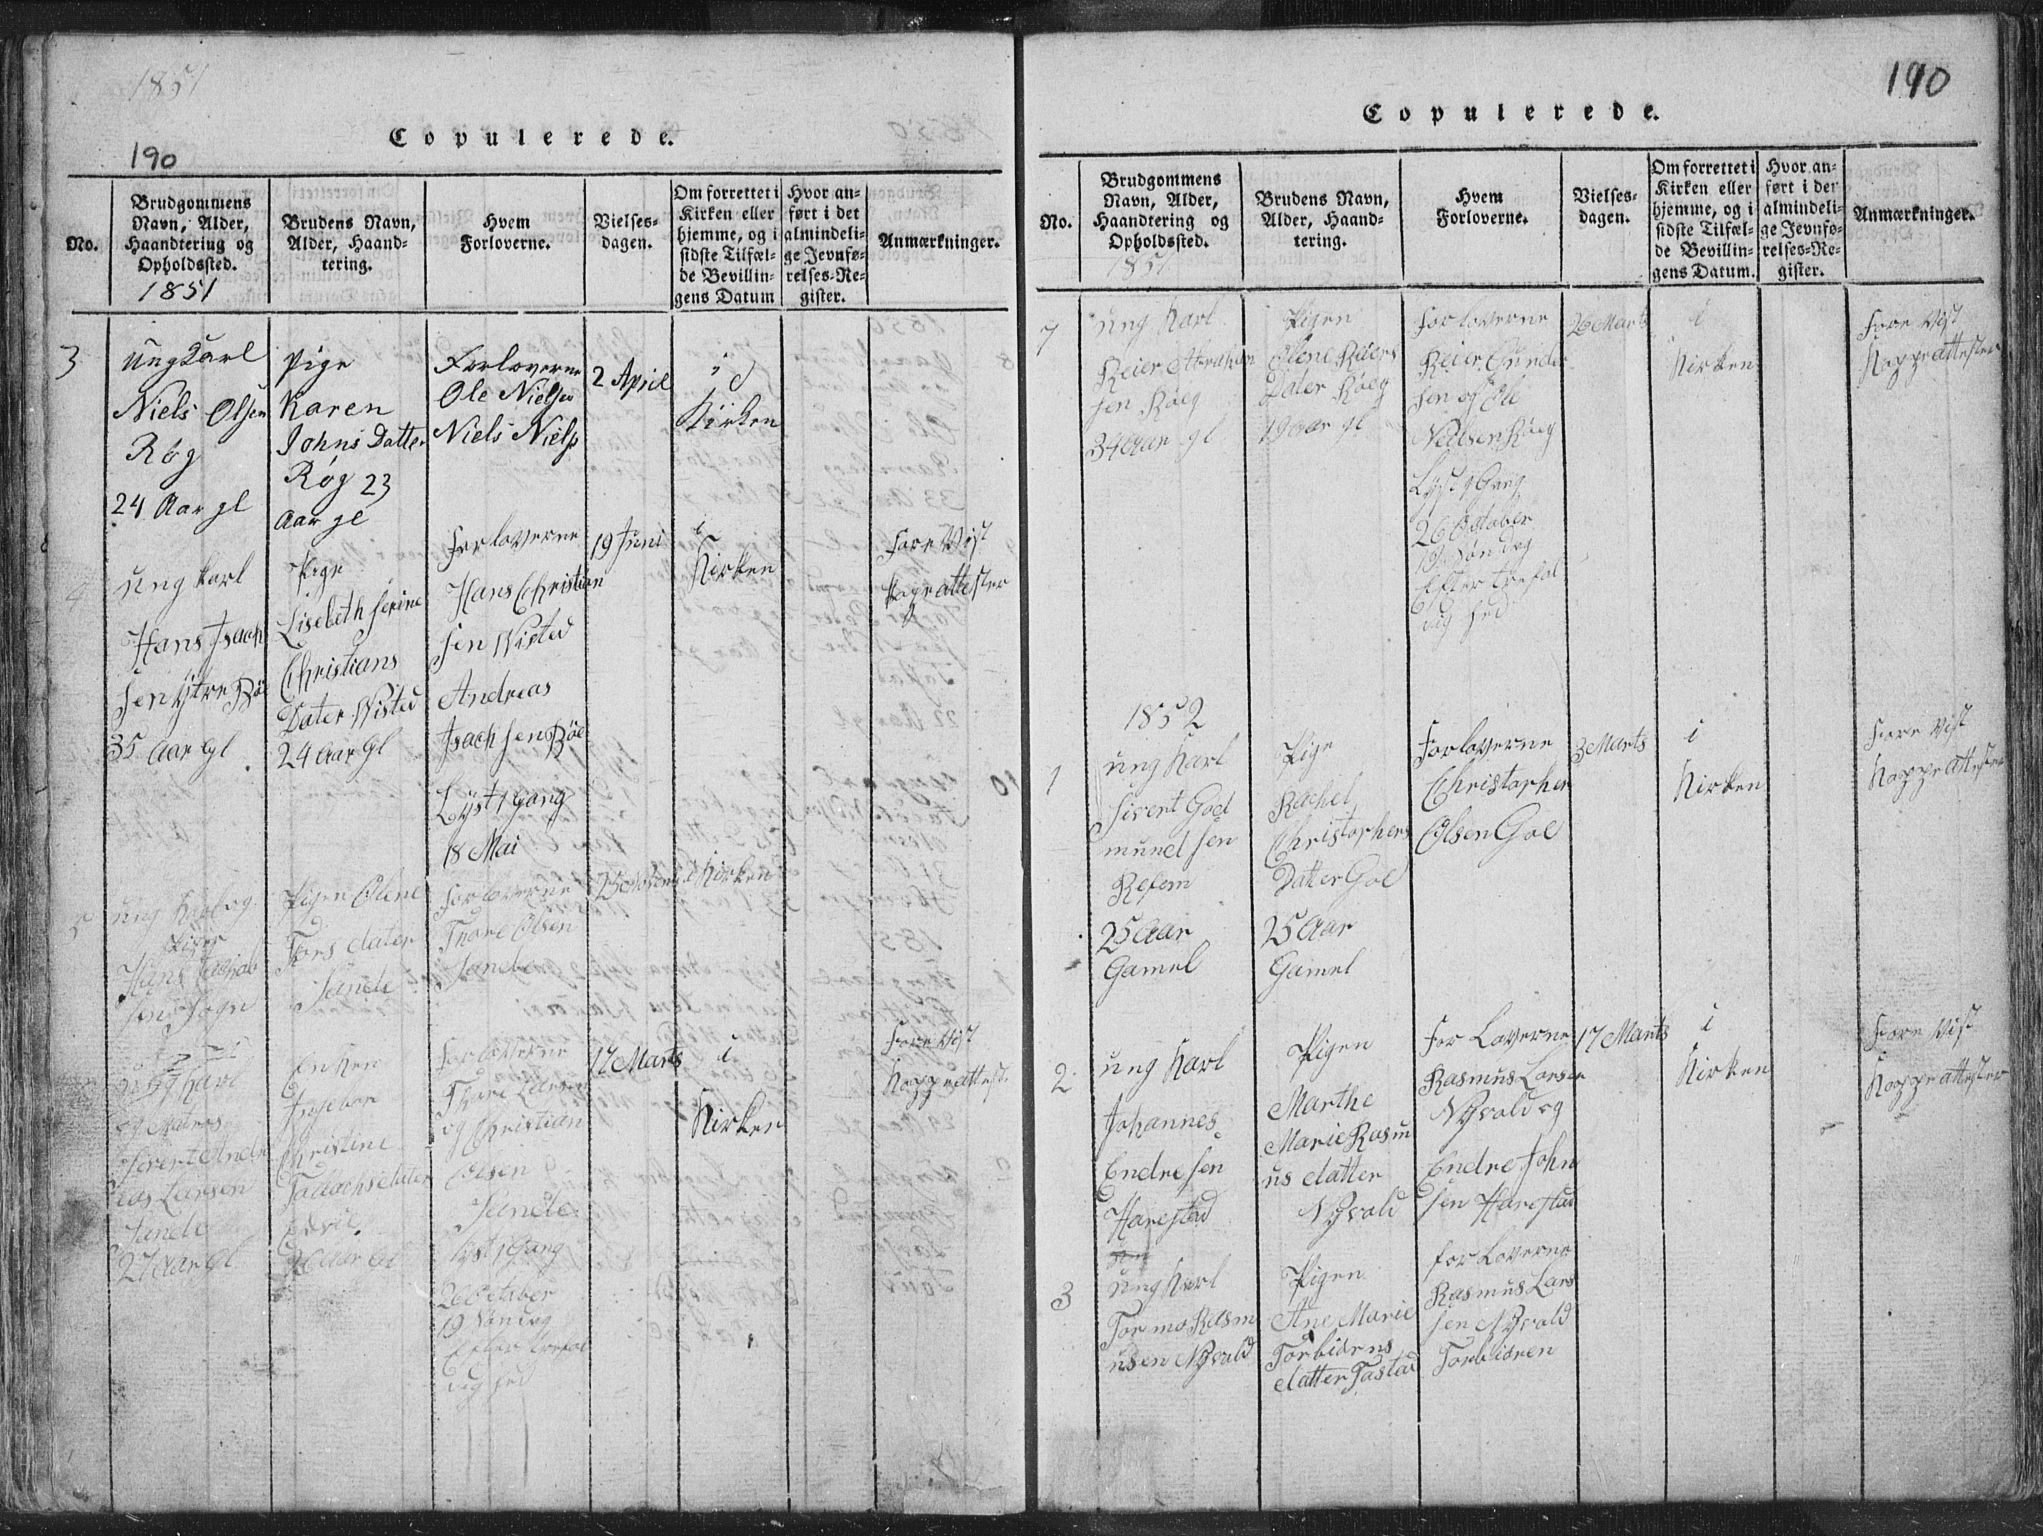 1851
Copulerede.
190
No.
Brudgommens
Navn, Alder,
Haandtering og
Opholdssted.
1851
Brudens Navn,
Alder, Haand-
tering.
Hvem
Forloverne.
Vielses-
dagen.
Om forrettet i
Kirken eller
hjemme, og i
sidste Tilfæl-
de Bevillin-
gens Datum
Hvor an-
ført i det
almindeli-
ge Jevnfø-
relses-Re-
gister.
Anmærkninger.
3
ung karl
Niels Olsen
Røg
24 Aar gl
Pige
Karen
Johns Datter
Røg 23
Aar gl
Forloverne
Ole Nielsen
Niels Niels
2 April
i
Kirken
4
ung karl
Hans Isach
sen ytre Bø
35 Aar gl
Pige
Lisebeth Serine
Christians
Dater Wisted
24 Aar gl
Forloverne
Hans Christian
sen Wisted
Andreas
Isachsen Böe
Lyst 1 Gang
18 Mai
19 Juni
i
Kirken
Fore Vist
kopeattester
5
ung karl og
Piger
Hans Jacob
sen Sogn
Pigen Oline
Tors dater
Sande
Forloverne
Thore Olsen
Sande
25
Kirken
ung karl
og
Sivert Andr
eas Larsen
Sande
27 Aar gl
Enken
Ingebor
Christine
Tallachsdater
Forloverne
Thore Larsen
og Christian
Olsen
Sande
Lyst 1 Gang
26 October
19 Söndag
Efter trefol
dig hed
17 Marts
i
Kirken
Fore Vist
Koppeattester
190
Copulerede.
No.
Brudgommens
Navn, Alder,
Haandtering og
Opholdssted.
1851
Brudens Navn,
Alder, Haand-
tering.
Hvem
Forloverne.
Vielses-
dagen.
Om forrettet i
Kirken eller
hjemme, og i
sidste Tilfæl-
de Bevillin-
gens Datum.
Hvor an-
ført i der
almindeli-
ge Jevnfø-
relses-Re-
gister.
Anmærkninger.
7
ung karl
Reier Abraham
sen Röeg
34 Aar gl
Pigen
Oline Reiers
Dater Röeg
19 Aar gl
Forloverne
Reier Gunder
sen og Ole
Nielsen Röeg
Lyst 1 Gang
26 Octaber
19 Söndag
Efter trefol
dig hed
26 Marts
i
Kirken
Fore Vist
Koppeattester
1852
1
ung Karl
Sivert God
mundsen
Refem
25 Aar
Gamel
Pige
Rachel
Christophers
Datter Goe
25 Aar
Gamel
Forloverne
Christopher
Olsen Goe
3 Marts
i
Kirken
Fore Vist
Koppeattester
2
ung Karl
Johannes
Endresen
Harestad
Pigen
Marthe
Marie Rasm
us datter
Nyvold
For Loverne
Rasmus Larsen
Nyvold og
Endre John
sen Harestad
17 Marts
i
Kirken
Fore Vist
Koppeattester
3
ung Karl
Tormo Rasm
usen Nyvold
Pigen
Ane Marie
Torbiörns
datter Tastad
for Loverne
Rasmus Lars
sen Nyvold
Torbiören